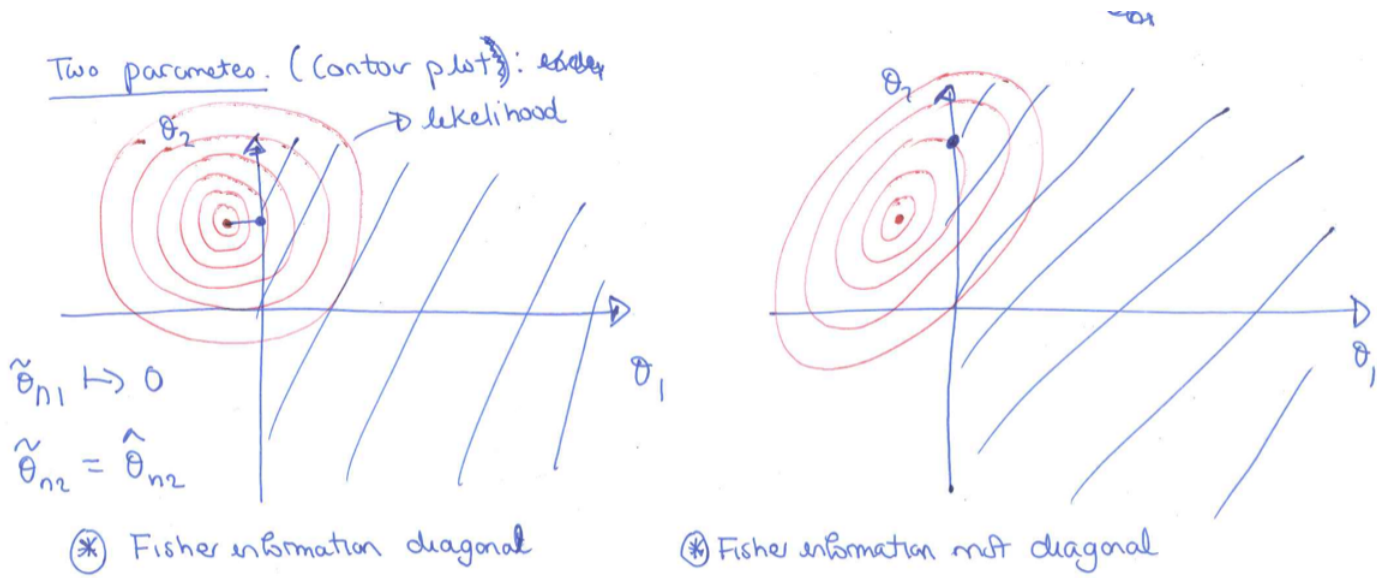 Two parameteo. (Contour plot):
likelihood
θ₂
θ₁
θ̃ₙ₁ ↦ 0
θ̃ₙ₂ = θ̂ₙ₂
⊛ Fisher information diagonal
θ₂
θ₁
⊛ Fisher information not diagonal